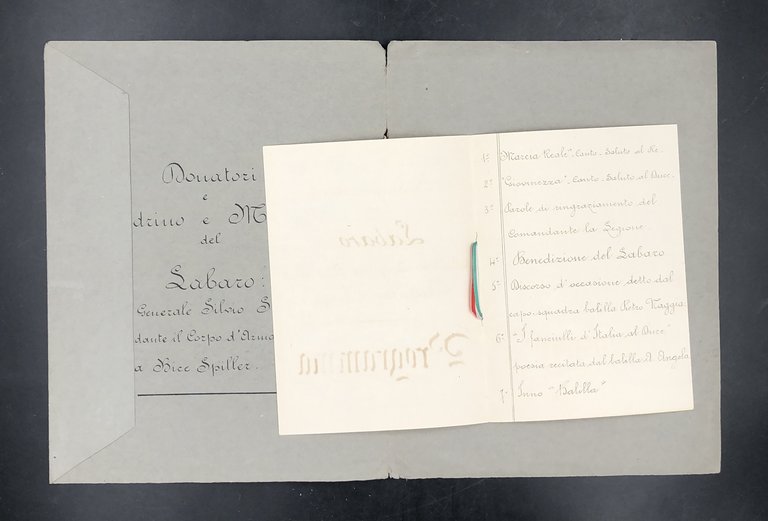 Donatori
e
drino e M
del
Labaro:
Generale Silvio S
dante il Corpo d'Arma
a Bice Spiller.
Labaro
Programma
1° "Marcia Reale" Canto - Saluto al Re.
2° "Giovinezza" Canto - Saluto al Duce.
3° Parole di ringraziamento del
Comandante la Legione.
4° Benedizione del Labaro
5° Discorso d'occasione detto dal
capo squadra balilla Pietro Maggia:
6° "I fanciulli d'Italia al Duce"
poesia recitata dal balilla A. Angela
7° Inno "Balilla"